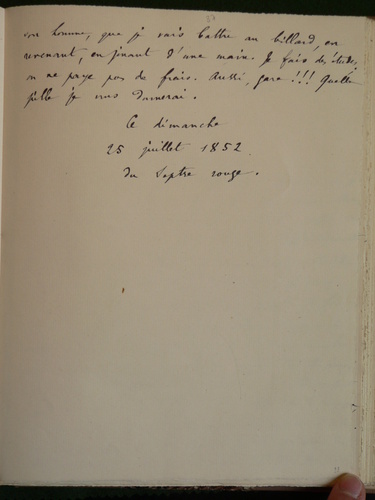 mon homme, que je vais battre au billard, en
revenant, en jouant d'une main. Je fais des études,
on ne paye pas de frais. Aussi, gare !!! Quelle
pile je vous donnerai.
Ce dimanche
25 juillet 1852
du Sceptre rouge.